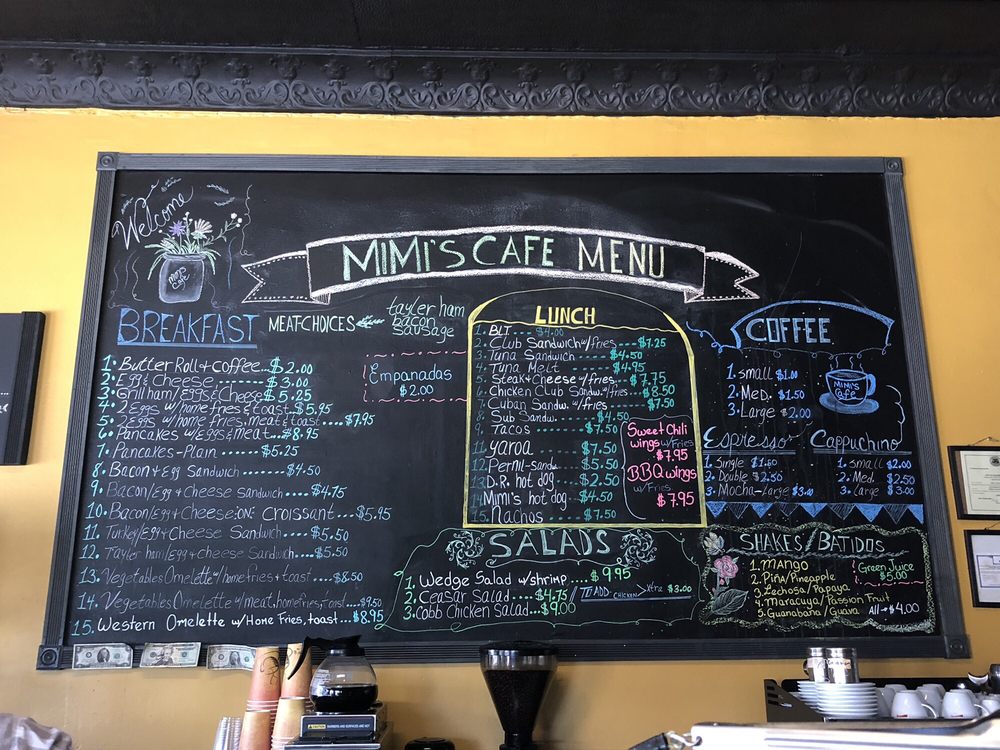 Welcome
Mimi's Cafe
MIMI'S CAFE MENU
BREAKFAST
MEAT-CHOICES
tayler ham
bacon
sausage
1. Butter Roll + coffee...$2.00
2. Egg & Cheese ........ $3.00
3. Grill ham/Eggs & Cheese $5.25
4. 2 Eggs w/home fries & toast. $5.95
5. 2 Eggs w/home fries, meat & toast.....$7.95
6. Pancakes w/Eggs & meat...$8.95
7. Pancakes-Plain.....$5.25
8. Bacon & Egg Sandwich......$4.50
9. Bacon/Egg + Cheese Sandwich.....$4.75
10. Bacon/Egg + Cheese:ON: Croissant....$5.95
11. Turkey/Egg + Cheese Sandwich....$5.50
12. Tayler ham/Egg + Cheese Sandwich...$5.50
13. Vegetables Omelette w/home fries + toast....$8.50
14. Vegetables Omelette w/meat, homefries, toast....$9.50
15. Western Omelette w/Home Fries, toast...$8.95
Empanadas
$2.00
LUNCH
1. BLT.... $4.00
2. Club Sandwich w/fries....$7.25
3. Tuna Sandwich.....$4.50
4. Tuna Melt..... $4.95
5. Steak + Cheese w/fries. $7.75
6. Chicken Club Sandw. w/fries...$8.50
7. Cuban Sandw. w/fries....$7.50
8. Sub Sandw. ... $4.50
9. Tacos..... $7.50
11 yaroa $7.50
12. Pernil-Sandw $5.50
13. D.R. hot dog.... $2.50
14 Mimi's hot dog..$4.50
15. Nachos..... $7.50
Sweet Chili
wings w/Fries
$7.95
BBQ wings
w/Fries
$7.95
SALADS
1. Wedge Salad w/shrimp....$9.95
2. Ceasar Salad....$4.75/ TU ADD CHICKEN Xtra $3.00
3. Cobb Chicken Salad...$9.00
COFFEE
1. small $1.00
2. Med. $1.50
3. Large $2.00
MIMI'S
Cafe
Espresso
1. Single $1.60
2. Double $2.50
3. Mocha-Large $3.00
Cappuchino
1. small $2.00
2. Med. $2.50
3. Large $3.00
SHAKES/BATIDOS
1. MANGO
2. Piña/Pineapple
3. Lechosa/Papaya
4. Maracuya/Passion Fruit
5. Guanabana/Guava All → $4.00
Green Juice
$5.00